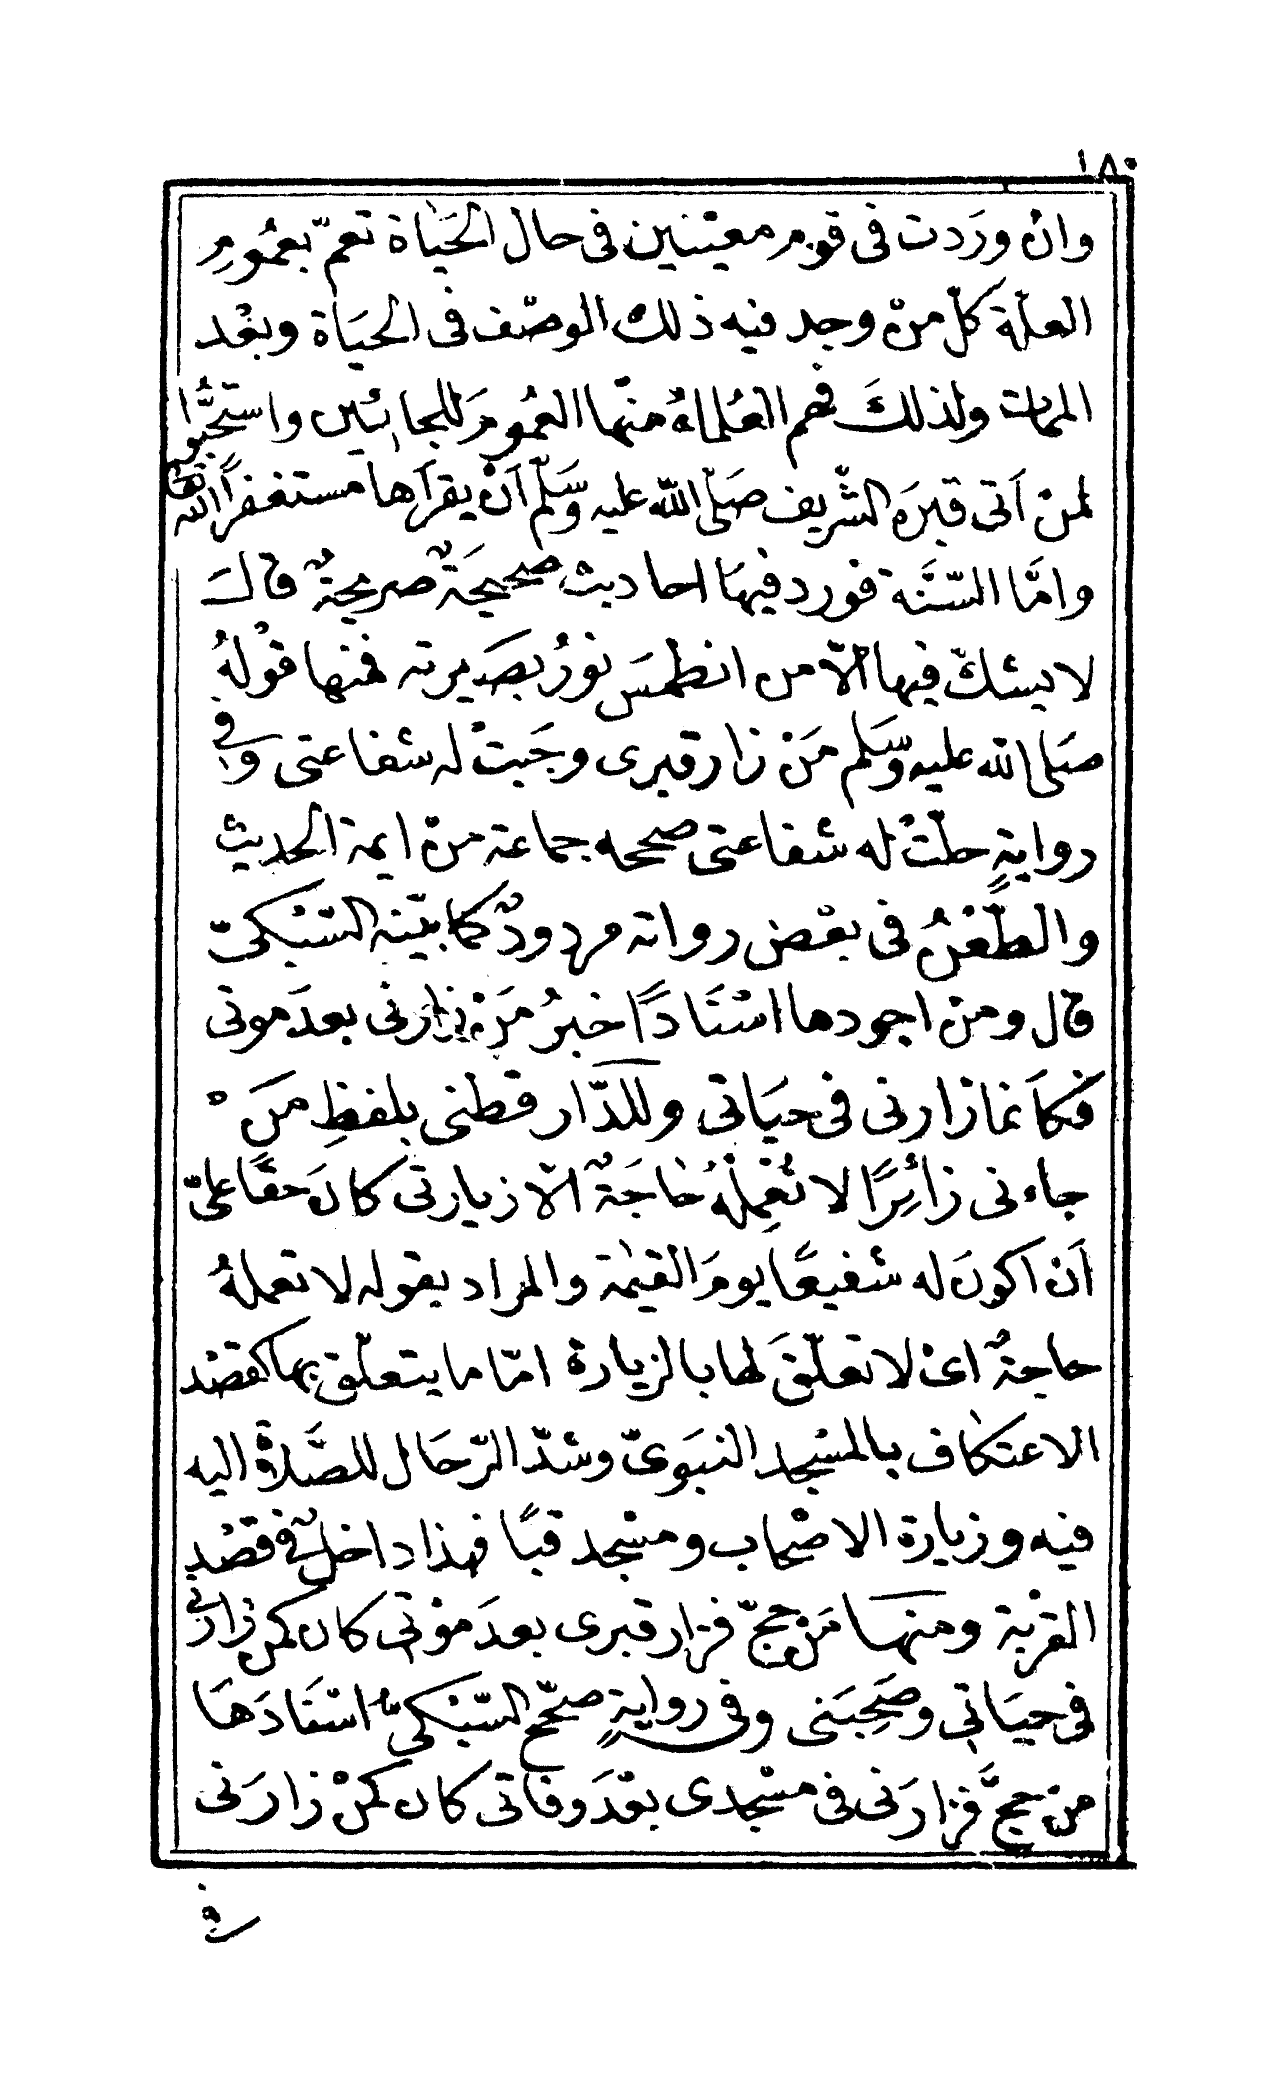 ١٨٠
وانْ ورَدت فى قوم معيّنين فى حال الحَيَاة تعمّ بعمُومِ
العلّة كلّ منْ وجد فيه ذلك الوصْف فى الحيَاة وبعْد
الممات ولذلكَ فهم العُلماءُ منها العمُومَ للجائين واستحَبُّوا
لمنْ اَتى قبرَه الشّريف صَلّى الله عليه وسَلّم اَنْ يقرأها مستغفراً الله
وامَّا السّنَّة فورد فيهَا احاديث صحيحَةٌ صريحةٌ قالَ
لايشكّ فيها الّا من انطمسَ نورُ بصَيرته فمنها قوْلهُ
صَلى الله عليه وسَلم مَنْ زار قبرى وجَبتْ له شفاعتى وفى
روايةٍ حلّتْ له شفاعتى صححه جماعة منْ ايمة الحديث
والطَّعْنُ فى بعْض رواته مردودٌ كما بيّنه السّبْكىّ
قال ومنْ اجودها اسْنَادًا خبرُ مَنْ زارنى بعدَ موتى
فكاَنما زارنى فى حيَاتى وللدّار قطنى بلفظِ مَنْ
جاءنى زائِرًا لا تُعْمِلُهُ حَاجَةٌ الّا زيارتى كانَ حقًّا علىّ
اَنْ اكونَ له شفيعًا يومَ القيٰمة والمراد بقوله لا تعملهُ
حاجةٌ اىْ لا تعلّقَ لها بالزيارة امّا ما يتعلّق بها كقصْد
الاعتكاف بالمسْجد النبَوىّ وشدّ الرّحَال للصَّلاة اليه
فيه وزيارة الاصْحاب ومسْجد قبًا فهذا داخلٌ فى قصْد
القربة ومنها مَنْ حجّ فزار قبرى بعدَ موْتى كان كمن زارنى
فى حيَاتى وصَحِبَنى وفى روايةٍ صحّح السّبْكىُّ اسْنَادَهَا
منْ حجَّ فزارَنى فى مسْجدى بعْدَ وفاتى كان كمنْ زارَنى
فى